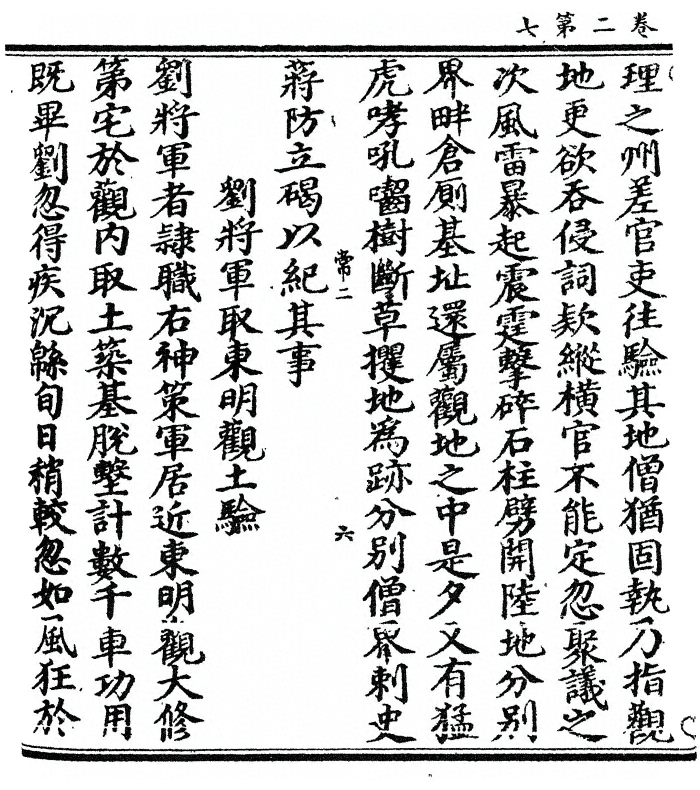 卷二第七
理之州差官吏往驗其地僧猶固執乃指觀
地更欲吞侵詞款縱橫官不能定忽聚議之
次風雷暴起震霆擊碎石柱劈開陸地分別
界畔倉廁基址還屬觀地之中是夕又有猛
虎哮吼嚙樹斷草攫地為跡分別僧界刺史
蔣防立碣以紀其事
常二
六
劉將軍取東明觀土驗
劉將軍者隸職右神策軍居近東明觀大修
第宅於觀內取土築基脫墼計數千車功用
既畢劉忽得疾沉綿旬日稍較忽如風狂於